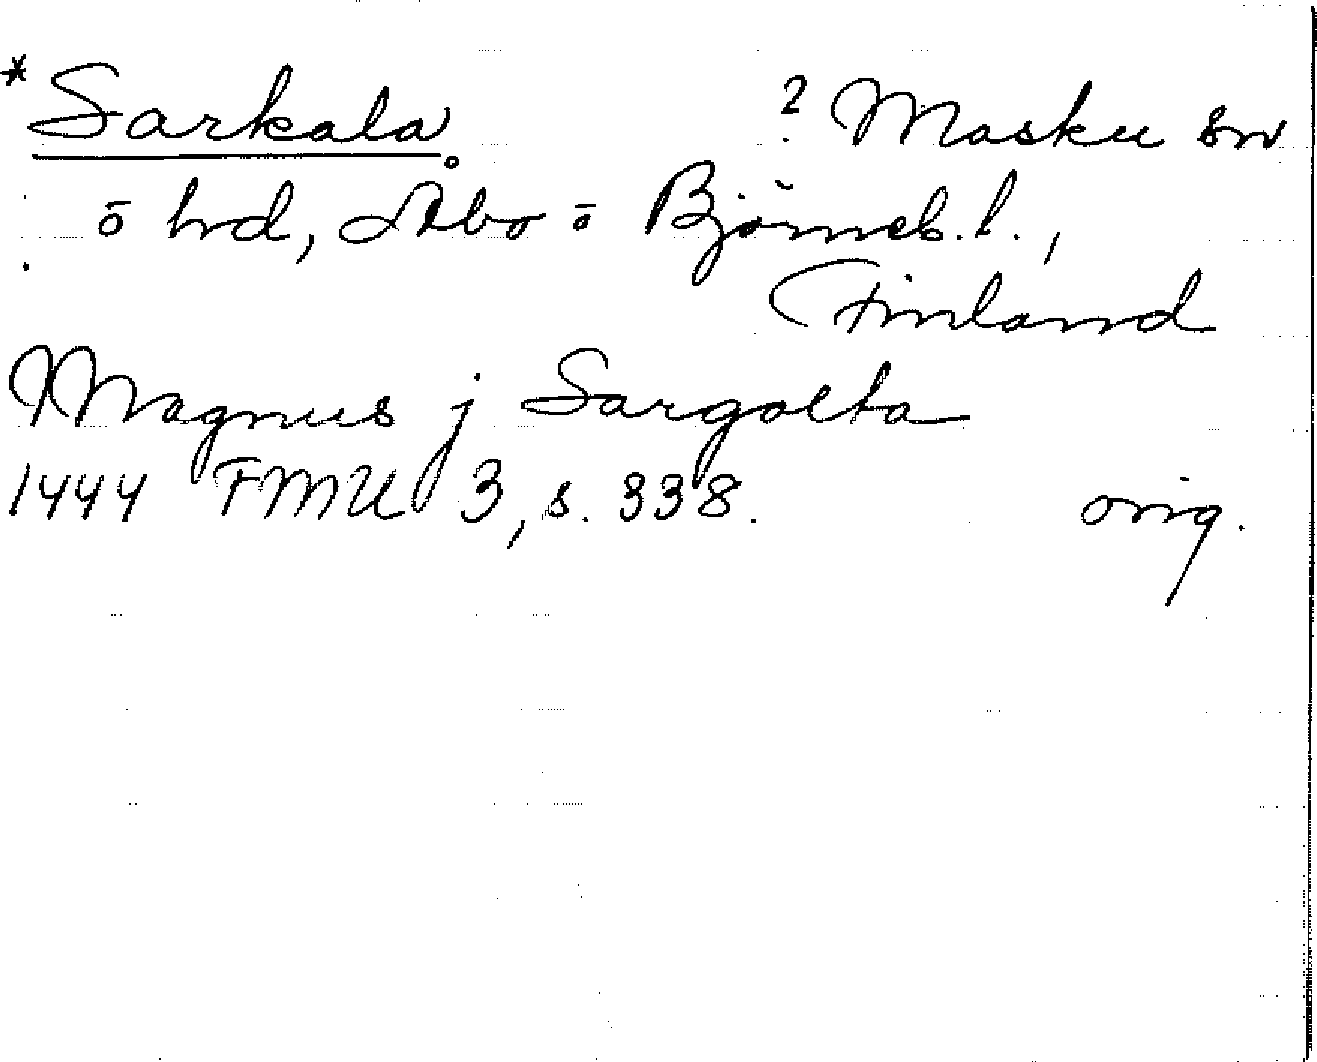 *Sarkala ? Masku sn
ō hrd, Åbo ō Björneb. l.,
Finland
Magnus j Sargolta
1444 FMU 3, s. 338. orig.